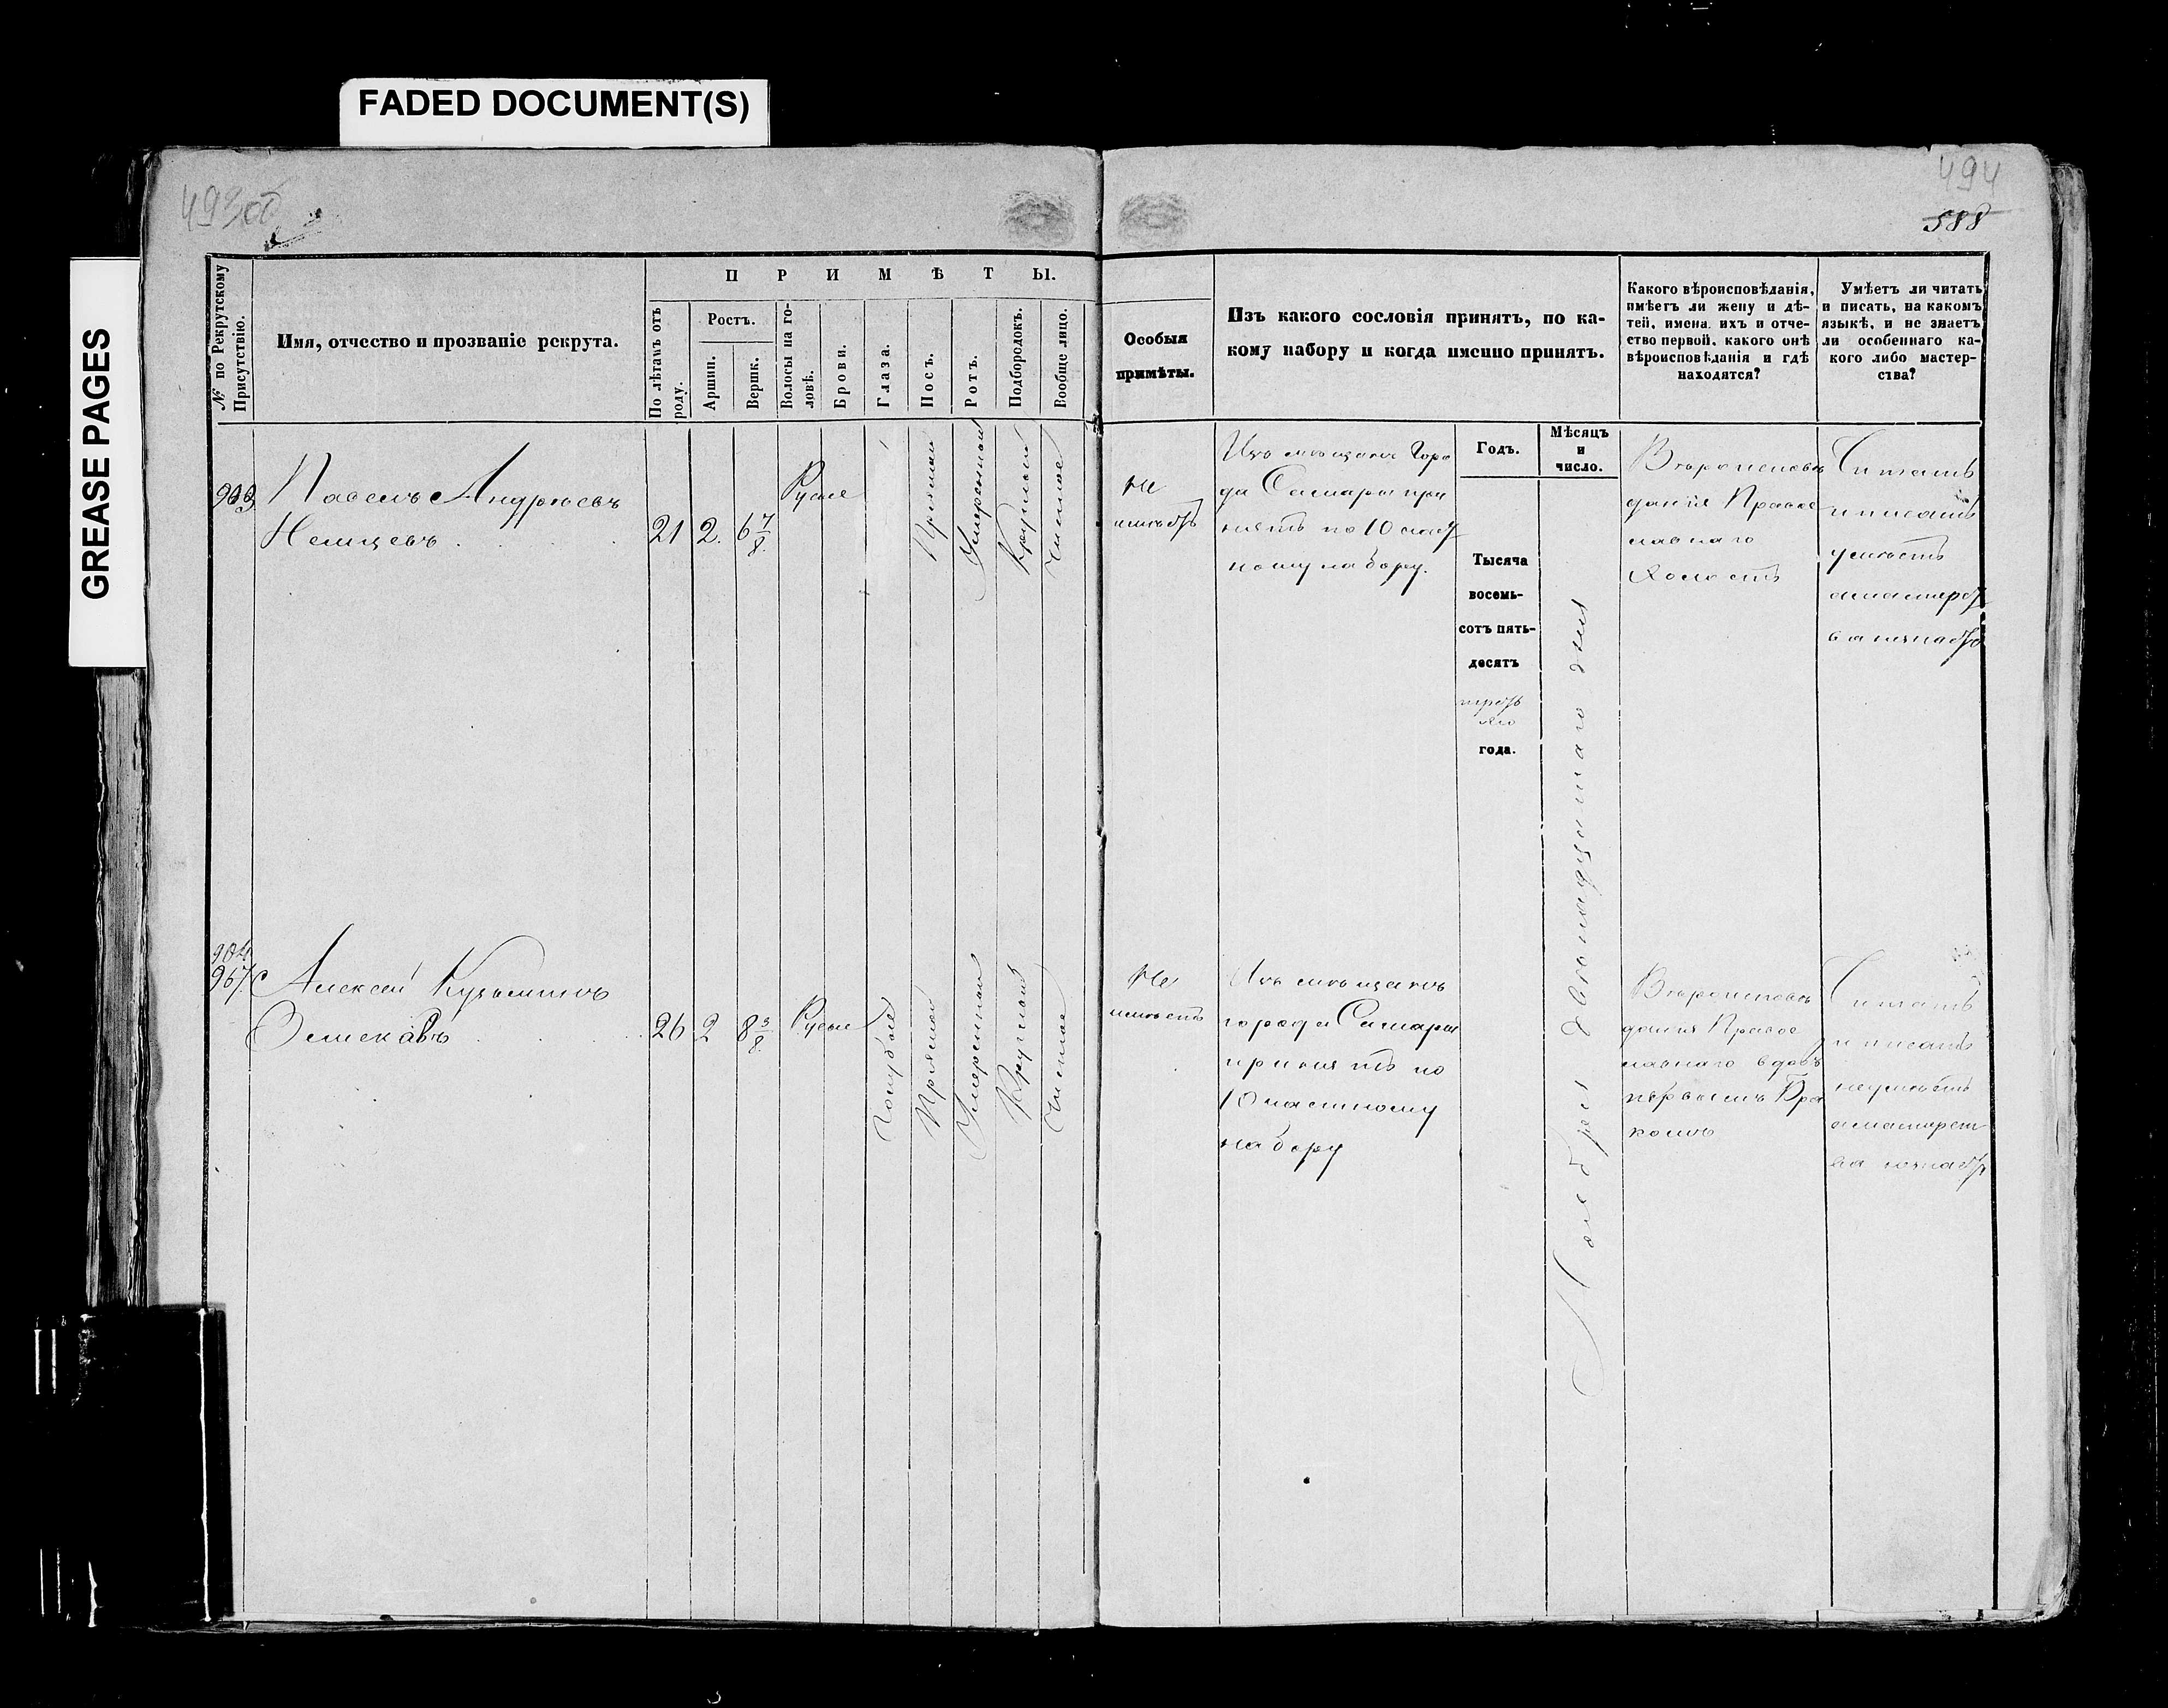 FADED DOCUMENT(S)
GREASE PAGES
493об
494
588
№ по Рекрутскому Присутствію.
Имя, отчество и прозваніе рекрута.
ПРИМѢТЫ.
По лѣтамъ отъ роду.
Ростъ.
Аршин.
Вершк.
Волосы на головѣ.
Брови.
Глаза.
Носъ.
Ротъ.
Подбородокъ.
Вообще лицо.
Особыя
примѣты.
Изъ какого сословія принятъ, по ка-
кому набору и когда именно принятъ.
Какого вѣроисповѣданія,
имѣетъ ли жену и дѣ-
тей, имена ихъ и отче-
ство первой, какого онѣ
вѣроисповѣданія и гдѣ
находятся?
Умѣетъ ли читать
и писать, на какомъ
языкѣ, и не знаетъ
ли особеннаго ка-
кого либо мастер-
ства?
Годъ.
Мѣсяцъ
и
число.
Павелъ Андреевъ
Немцевъ
21
2.
6 7/8.
Русые
Прямой
Умеренной
Круглой
Чистое
Не
имеетъ
Изъ мещанъ Горо
да Самары при
нятъ по 10 част
ному набору.
Тысяча
восемь-
сотъ пять-
десятъ
года.
Ноября двенадцатого дня
Вероисповѣ
данія Правос
лавнаго
Холостъ
Читать
и писать
умѣетъ
904
967.
Алексей Кузьминъ
26
2
8 3/8
Русые
Голубые
Прямой
Умеренной
Круглой
Чистое
Не
имеетъ
Изъ мещанъ
города Самары
принятъ по
10 частному
набору
Вероисповѣ
данія Правос
лавнаго вдовъ
первымъ Бра
комъ
Читать
и писать
неумѣетъ